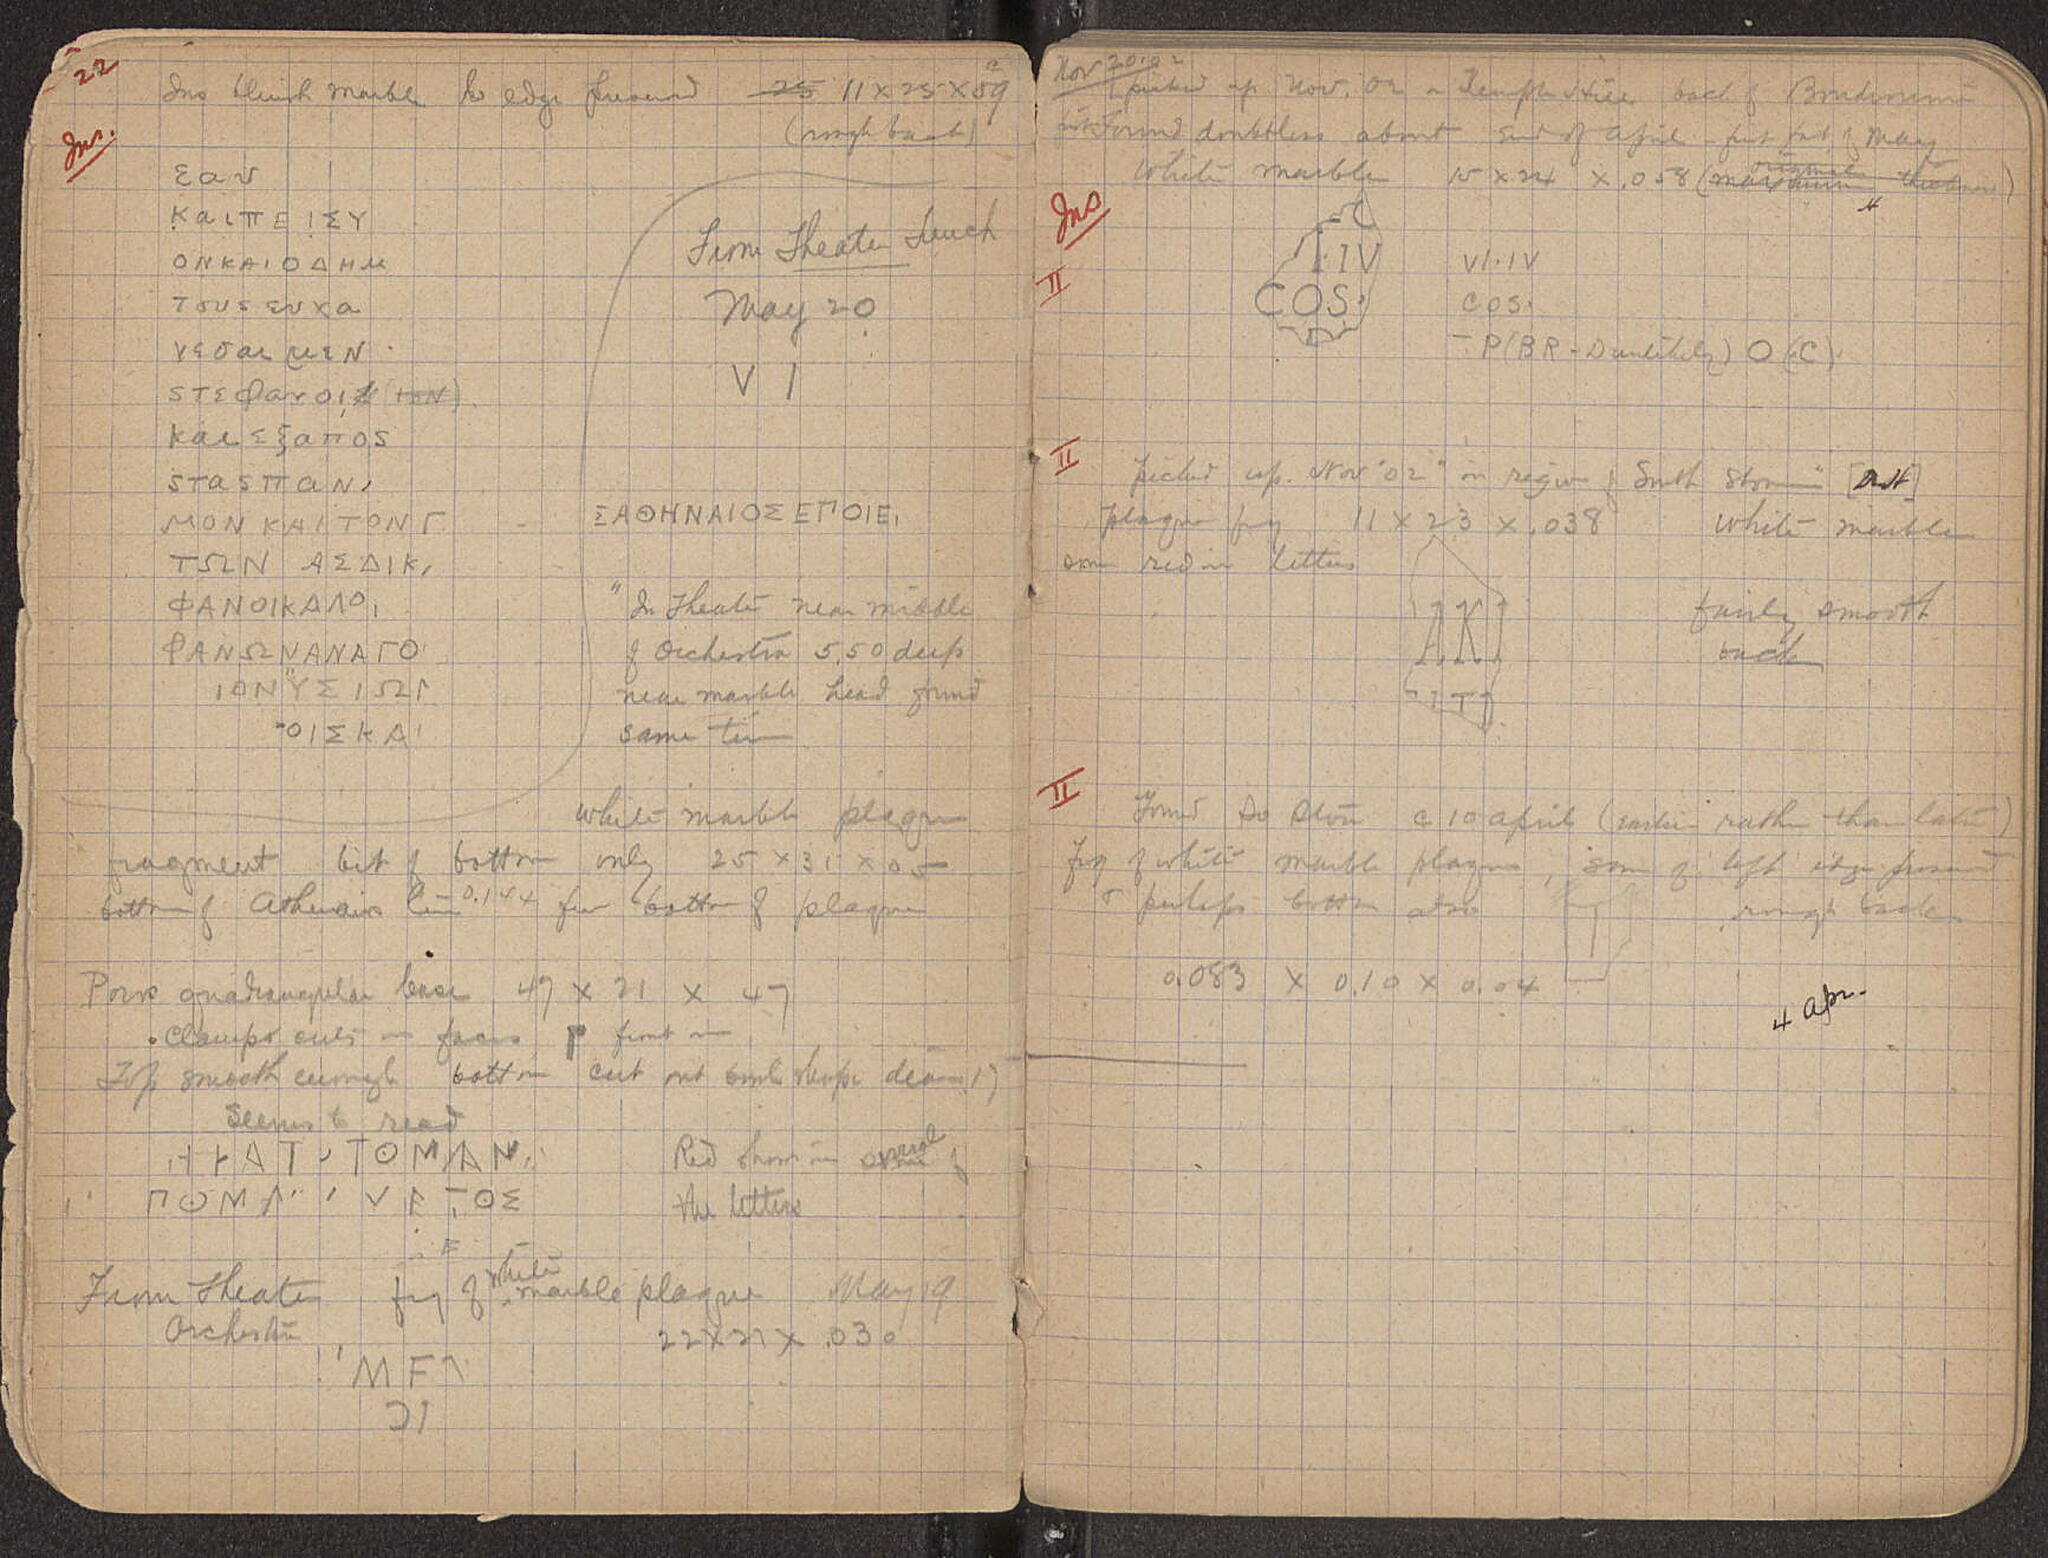 22
Ins bluish marble no edge preserved 25 11 x 25 x 59
(rough back)
Ins.
εαν
ΚαιΠΕΙΣΥ
ΟΝΚΑΙΟΔΗΜ
τουςευχα
νεσαιμεν
STεφανοι (τον)
Και εξαπος
STαSΠαΝ
ΜΟΝ ΚΑΙ ΤΟΝ Γ
ΤΩΝ ΑΣΔΙΚ
ΦΑΝΟΙΚΑΛΟ
ΦΑΝΩΝΑΝΑΓΟ
ΙΟΝΥΣΙΩΓ
ΟΙΣΚΑ
From Theater Trench
May 20
VI
ΣΑΘΗΝΑΙΟΣΕΠΟΙΕ
"In Theater near middle
of Orchestra 5.50 deep
near marble head found
same time
White marble plaque
fragment bit of bottom only 25 x 31 x 05
bottom of Athenaios line 0.144 from bottom of plaque
Poros quadrangular base 47 x 21 x 47
Clamps cuts in faces front
Top smooth enough bottom cut out bowl shape diam 17
Seems to read
ΑΤ ΤΟΜΑΝ
ΠΟΜΛ ΕΤΟΣ
F
Red shows in several of
the letters
From Theater frg of white marble plaque May 19
Orchestra 22 x 21 x .030
MF
Nov 20
picked up Nov. 02 in Temple Hill back of
found doubtless about end of April - first part of May
White marble 15 x 24 x .058 (maximum original thickness)
Ins
II
I·IV
COS·
VI·IV
COS·
P(BR-D unlikely) O (C)·
II
picked up Nov "02" in region of South Stoa" [
plaque frg 11 x 23 x .038 White marble
some red in letters
AK
IT
fairly smooth
back
II
Found So Stoa c 10 April (earlier rather than later)
frg of white marble plaque, some of left edge preserved
& perhaps bottom also rough back
0.083 x 0.10 x 0.04
4 Apr.